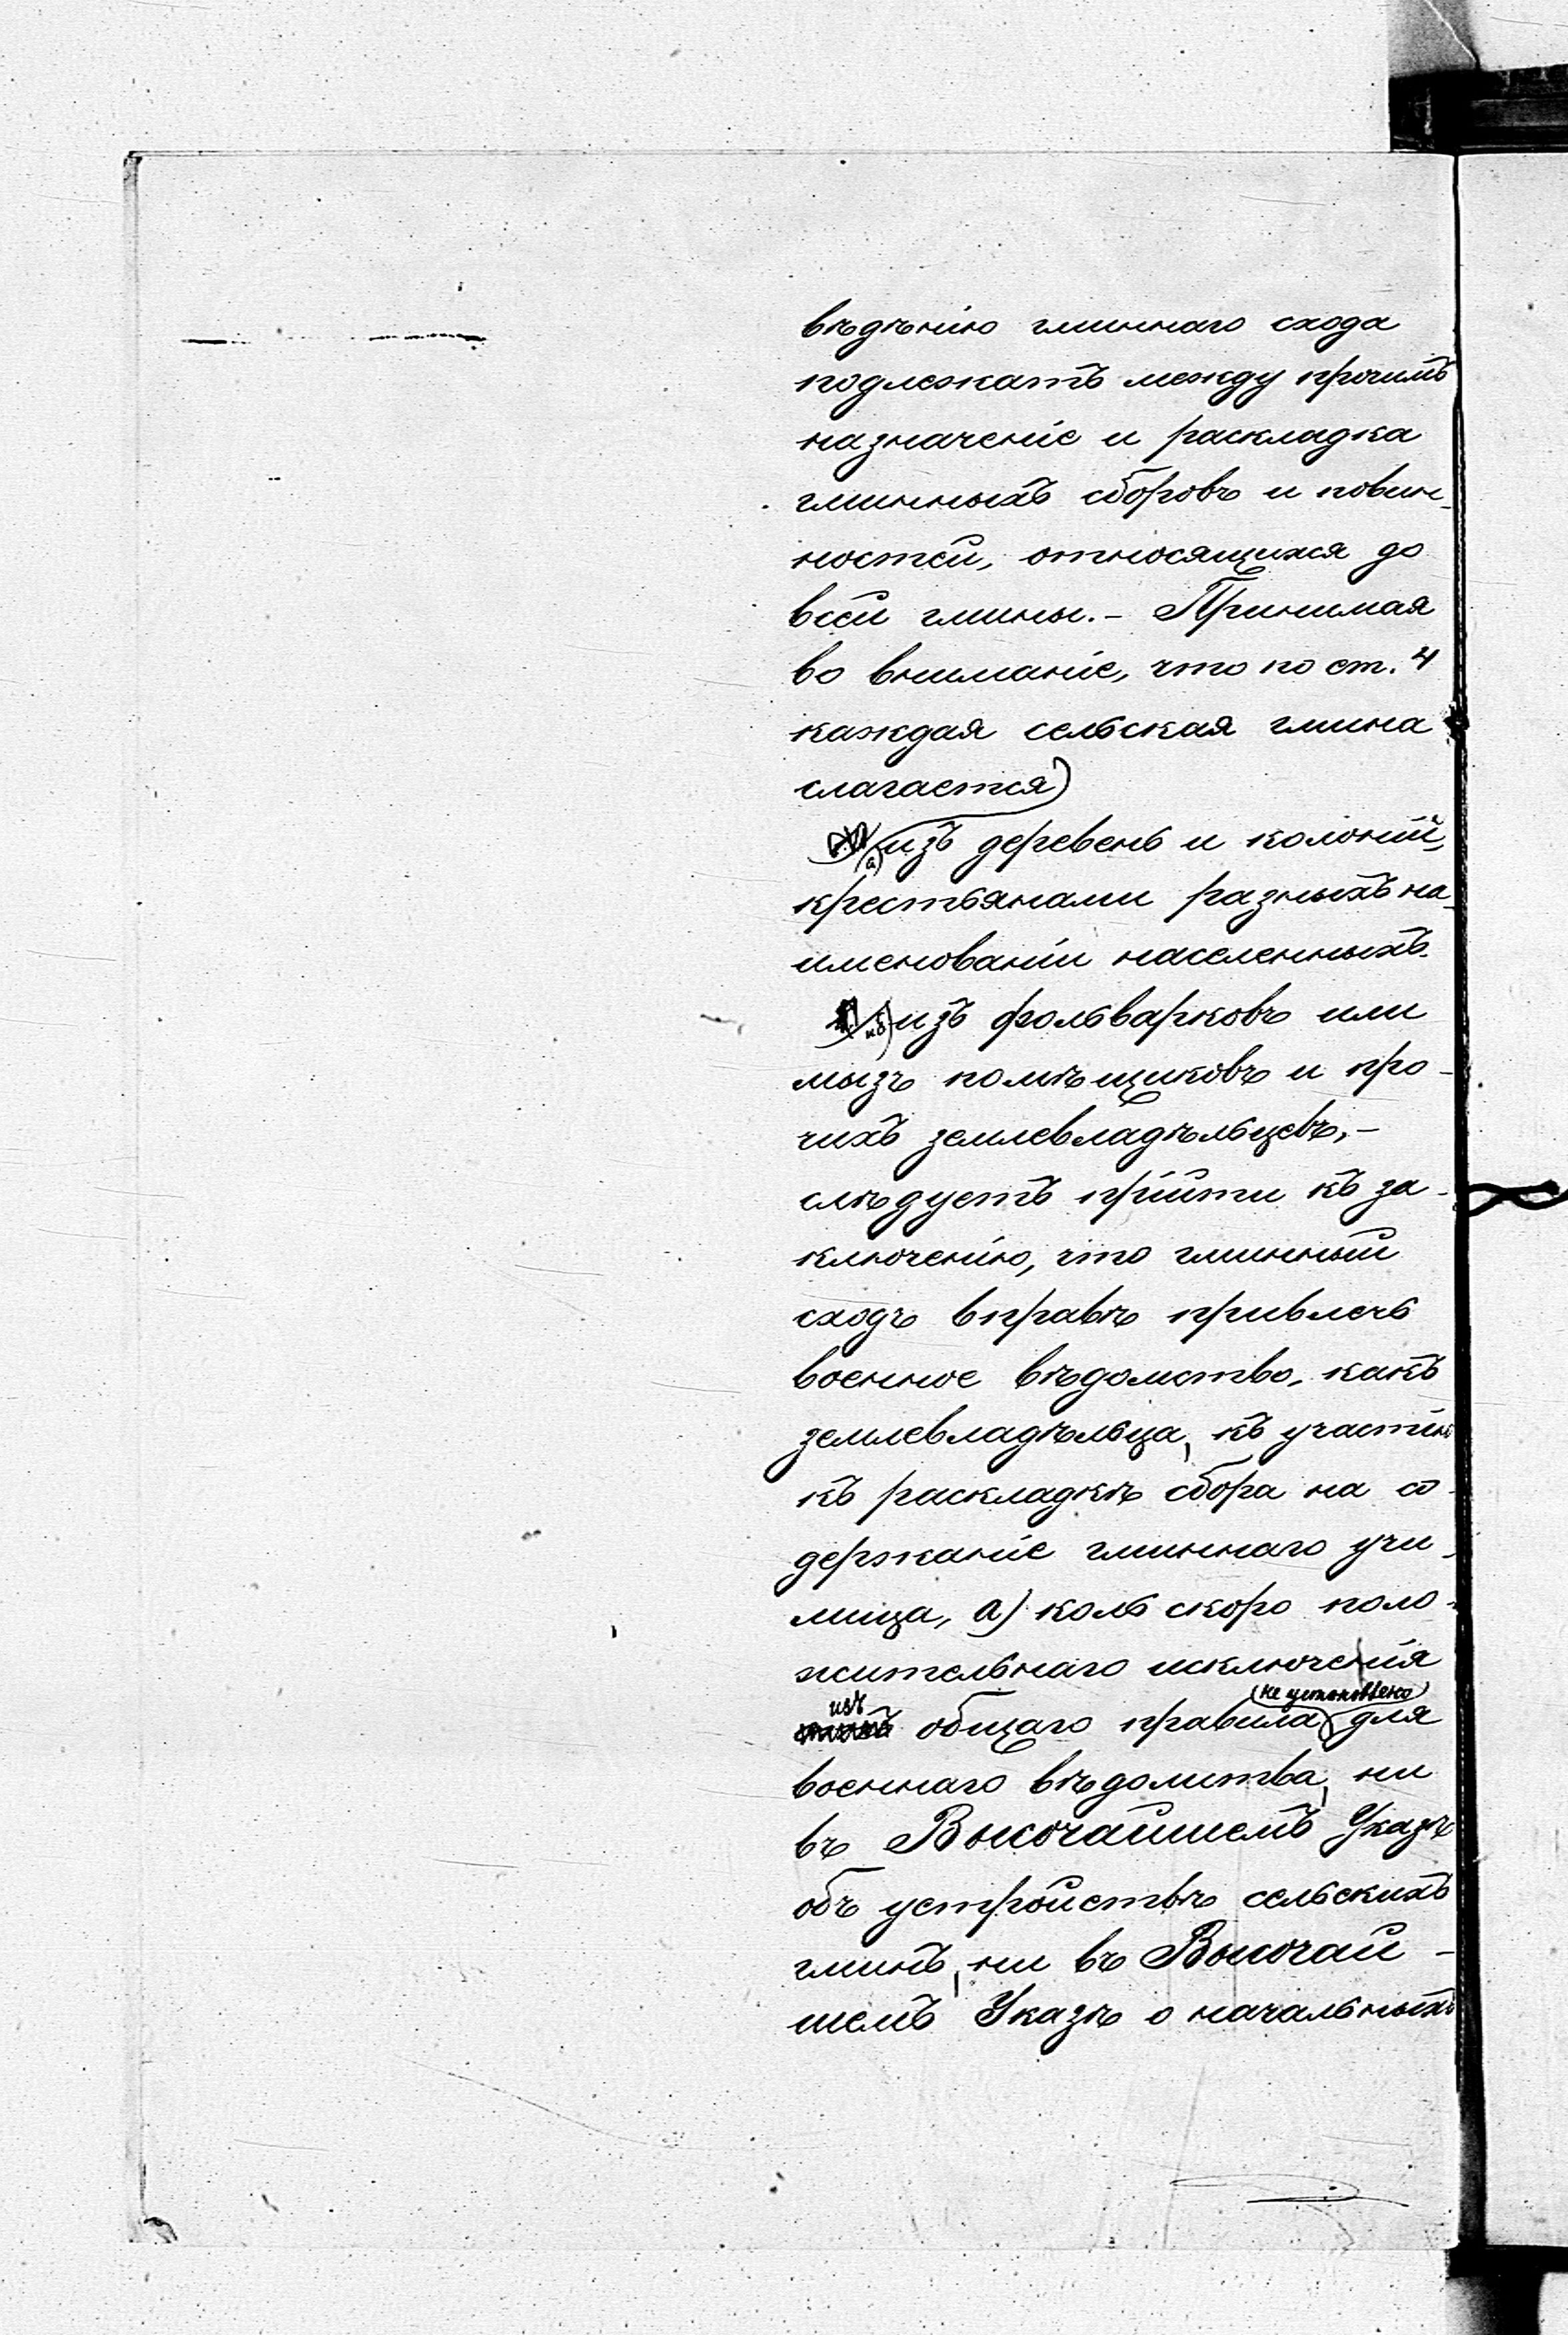 вѣдѣнію гминнаго схода
подлежатъ между прочимъ
назначеніе и раскладка
гминныхъ сборовъ и повин-
ностей, относящихся до
всей гмины. – Принимая
во вниманіе, что по ст. 4
каждая сельская гмина
слагается)
а) изъ деревень и колоній,
крестьянами разныхъ на-
именованій населенныхъ.
и б) изъ фольварковъ или
мызъ помѣщиковъ и про-
чихъ землевладѣльцевъ, –
слѣдуетъ прійти къ за-
ключенію, что гминный
сходъ вправѣ привлечь
военное вѣдомство, какъ
землевладѣльца, къ участію
къ раскладкѣ сбора на со-
держаніе гминнаго учи-
лища, а) коль скоро поло-
жительнаго исключенія
изъ общаго правила (не установлено) для
военнаго вѣдомства, ни
въ Высочайшемъ Указѣ
объ устройствѣ сельскихъ
гминъ, ни въ Высочай-
шемъ Указѣ о начальныхъ